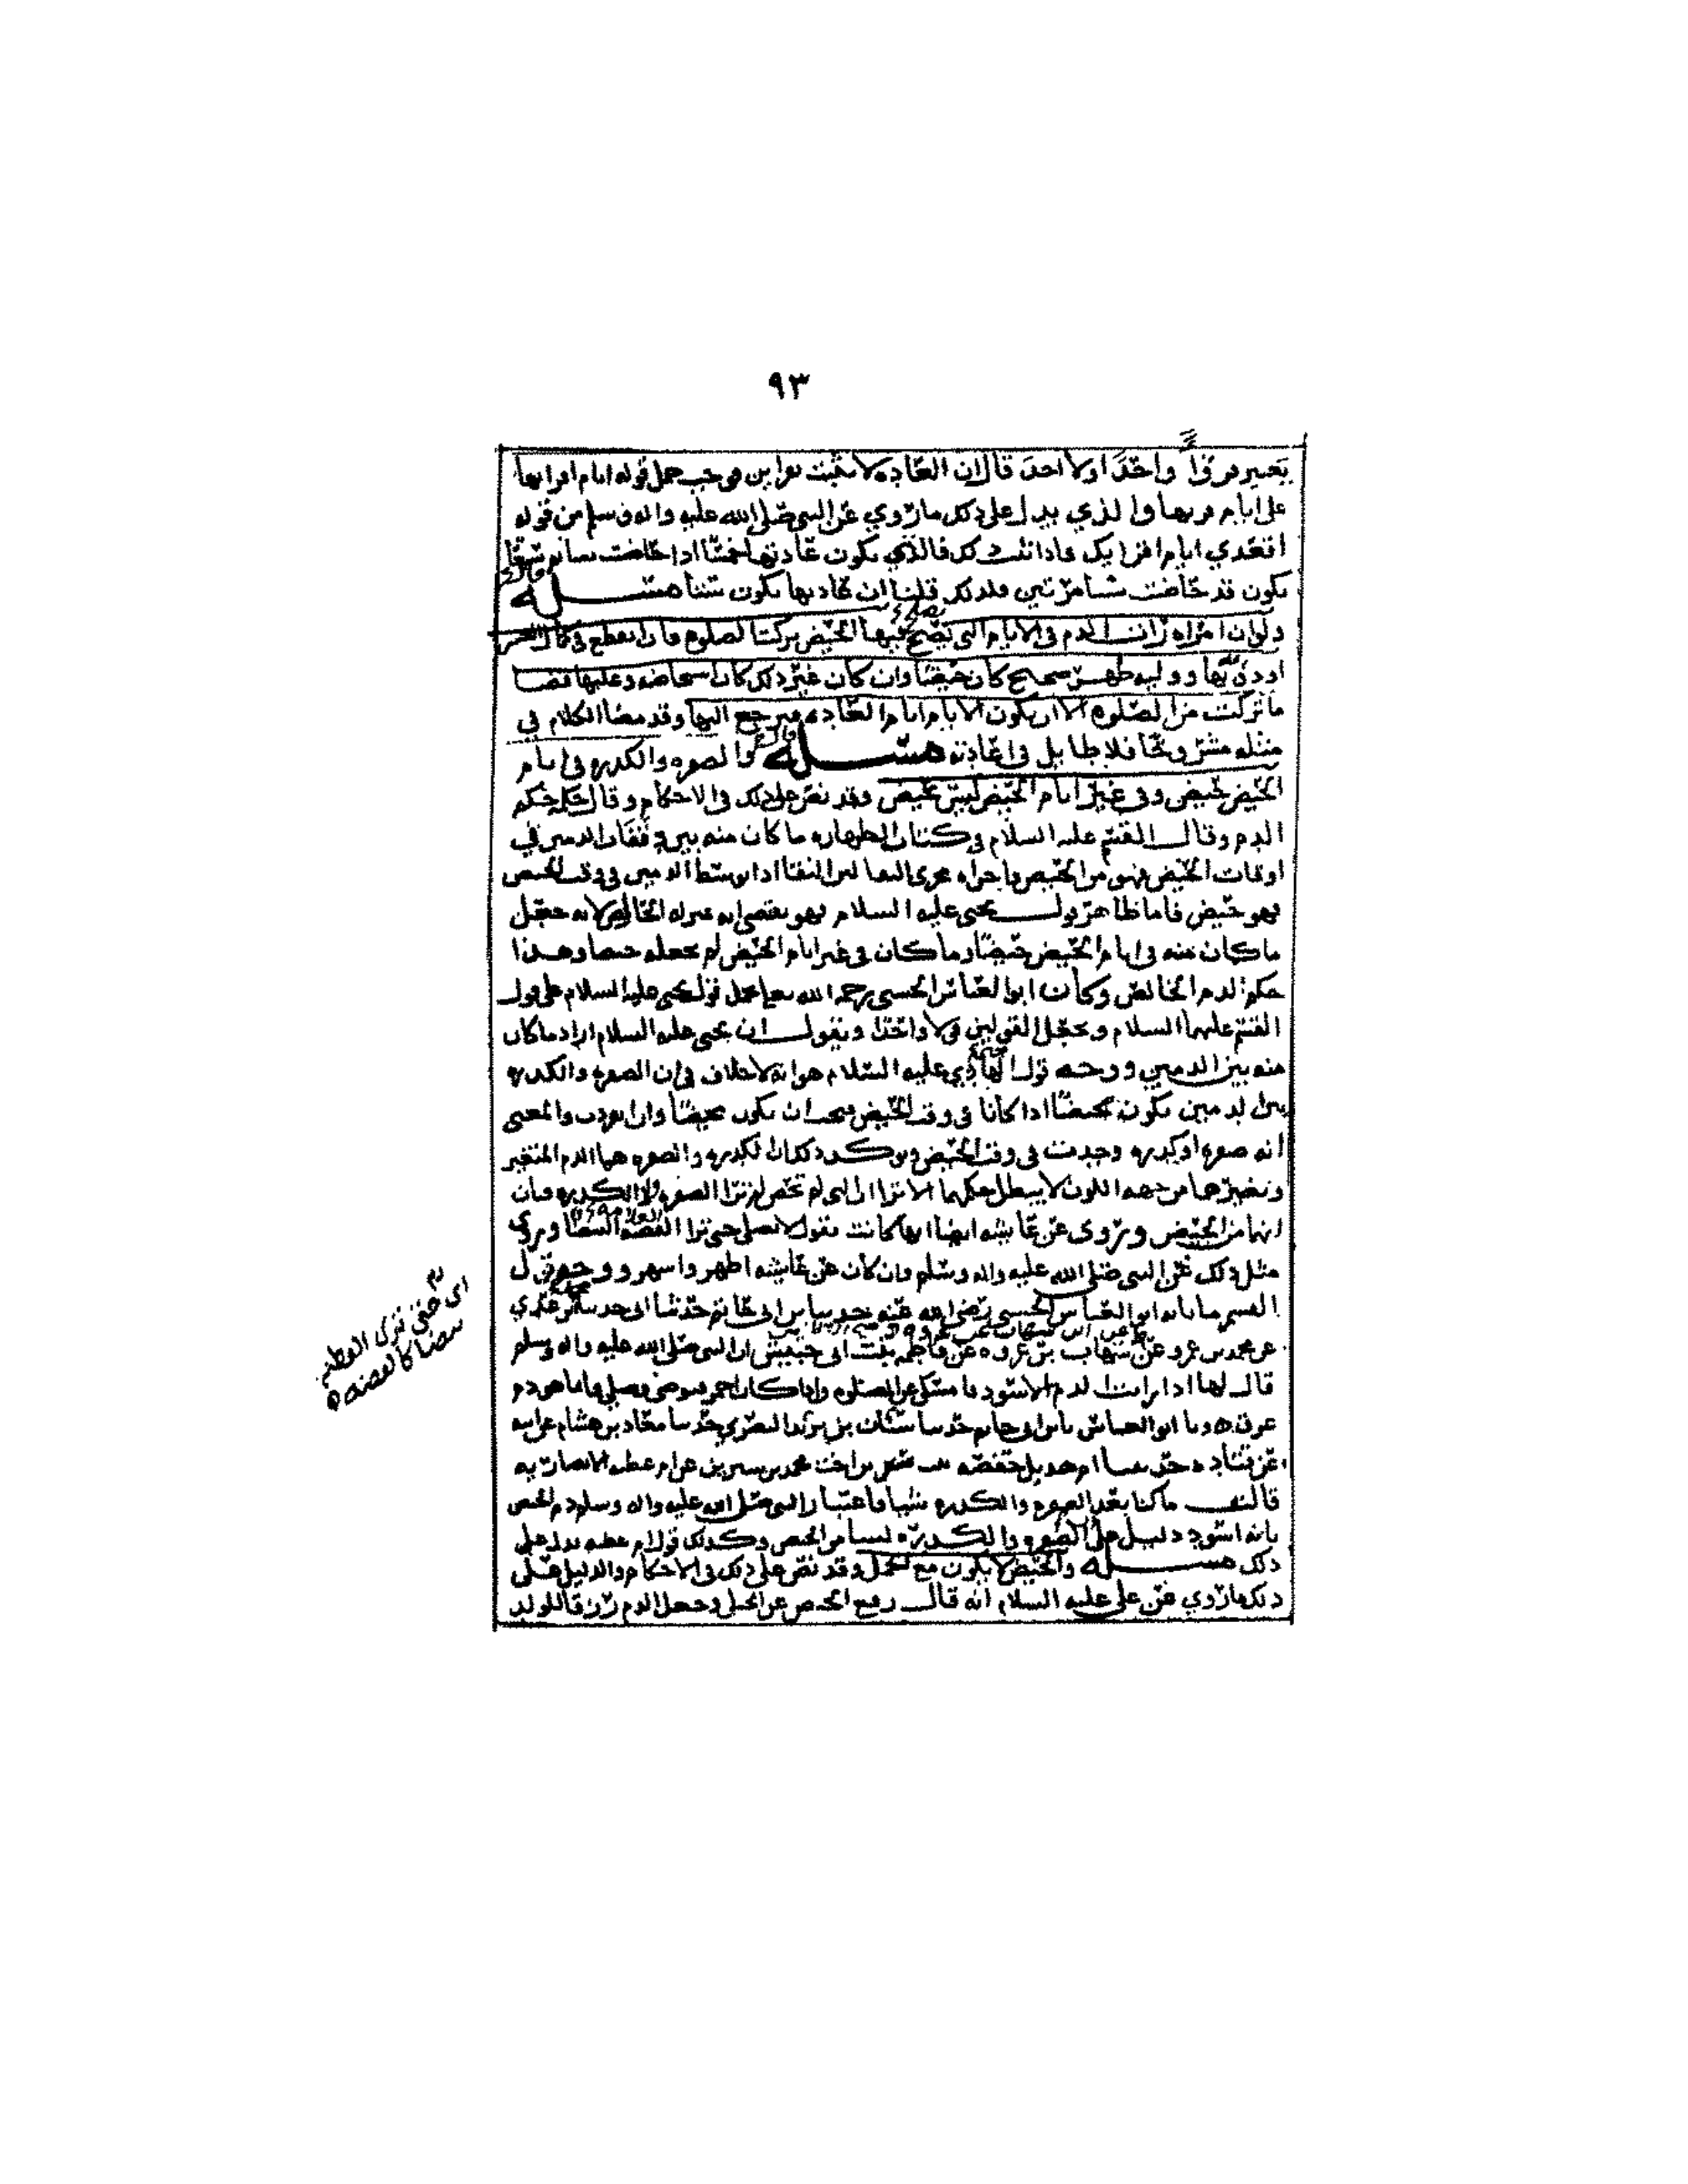 ٩٣
يصير قرؤاً واحداً ولا احد قال ان العاده لا تثبت بقراين فوجب حمل قوله ايام اقرايها
على ايام قريها والذي يدل على ذلك ما روي عن النبي صلى الله عليه واله وسلم من قوله
اقعدي ايام اقرايك فاذا ثبت ذلك فالذي يكون عادتها خمسا اذا حاضت ستا ثم سبعا
يكون قد حاضت ستا مرتين فلذلك قلنا ان عادتها يكون ستا مسله قال
ولو ان امراه رات الدم في الايام التي يصح فيها الحيض تركت الصلوه فان انقطع في تمام العشر
او دونها ووليه طهر صحيح كان حيضا وان كان غير ذلك كان استحاضه وعليها قضا
ما تركت من الصلوه الا ان يكون الايام ايام العاده فيرجع اليها وقد مضا الكلام في
مثله مشروحا فلا طايل في اعادته مسله قال والصفره والكدره في ايام
الحيض حيض وفي غير ايام الحيض ليس بحيض وقد نص على ذلك في الاحكام وقال حكمه حكم
الدم وقال القسم عليه السلام في كتاب الطهاره ما كان منه بين
اوقات الحيض فهو من الحيض فاجراه مجرى النقا لان النقا اذا توسط الدمين في وقت الحيض
فهو حيض فاما ظاهر قول يحيى عليه السلام فهو يقتضي انه بمنزله الدم الخالص لانه جعل
ما كان منه في ايام الحيض حيضا وما كان في غير ايام الحيض لم يجعله حيضا وهذا
حكم الدم الخالص وكان ابو العباس الحسني رحمه الله تعالى يحمل قول يحيى عليه السلام على قول
القسم عليهما السلام ويجعل القولين قولا واحدا ويقول ان يحيى عليه السلام اراد ما كان
منه بين الدمين ووجه قول الهادي عليه السلام هو انه لا خلاف في ان الصفره والكدره
بين الدمين يكون حيضا اذا كانا في وقت الحيض فيجب ان يكون حيضا وان انفردت والمعنى
انه صفره او كدره وجدت في وقت الحيض ويوكد ذلك ان الكدره والصفره هما الدم المتغير
وتغيرهما من جهه اللون لا يبطل حكمهما الا ترا ان التي لم تحض لم ترا الصفره ولا الكدره فبان
انهما من الحيض ويروى عن عايشه ايضا انها كانت تقول لا تصلي حتى ترا القصه البيضا وروي
مثل ذلك عن النبي صلى الله عليه واله وسلم وان كان عن عايشه اظهر واشهر ووجه قول
القسم ما اناه ابو العباس الحسني رضي الله عنه حدثنا بن ابي حاتم حدثنا ابي حدثنا بن عدي
عن محمد بن عمرو عن شهاب بن عروه عن فاطمه بنت ابي حبيش ان النبي صلى الله عليه واله وسلم
قال لها اذا رايت الدم الاسود فامسكي عن الصلوه واذا كان احمر فتوضي وصلي فانما هو دم
عرق وانا ابو العباس نا بن ابي حاتم حدثنا سنان بن يزيد البصري حدثنا معاذ بن هشام عن ابيه
عن قتاده حدثتنا ام هذيل حفصه بنت سيرين اخت محمد بن سيرين عن ام عطيه الانصاريه
قالت ما كنا نعد الصفره والكدره شيا فاعتبار النبي صلى الله عليه واله وسلم دم الحيض
بانه اسود دليل على ان الصفره والكدره ليسا من الحيض وكذلك قول ام عطيه يدل على
ذلك مسله والحيض لا يكون مع الحمل وقد نص على ذلك في الاحكام والدليل على
ذلك ما روي عن علي عليه السلام انه قال رفع الحيض عن الحبلى وجعل الدم رزقا للولد
اي حتى ترى القطنه
بيضا كالفضه